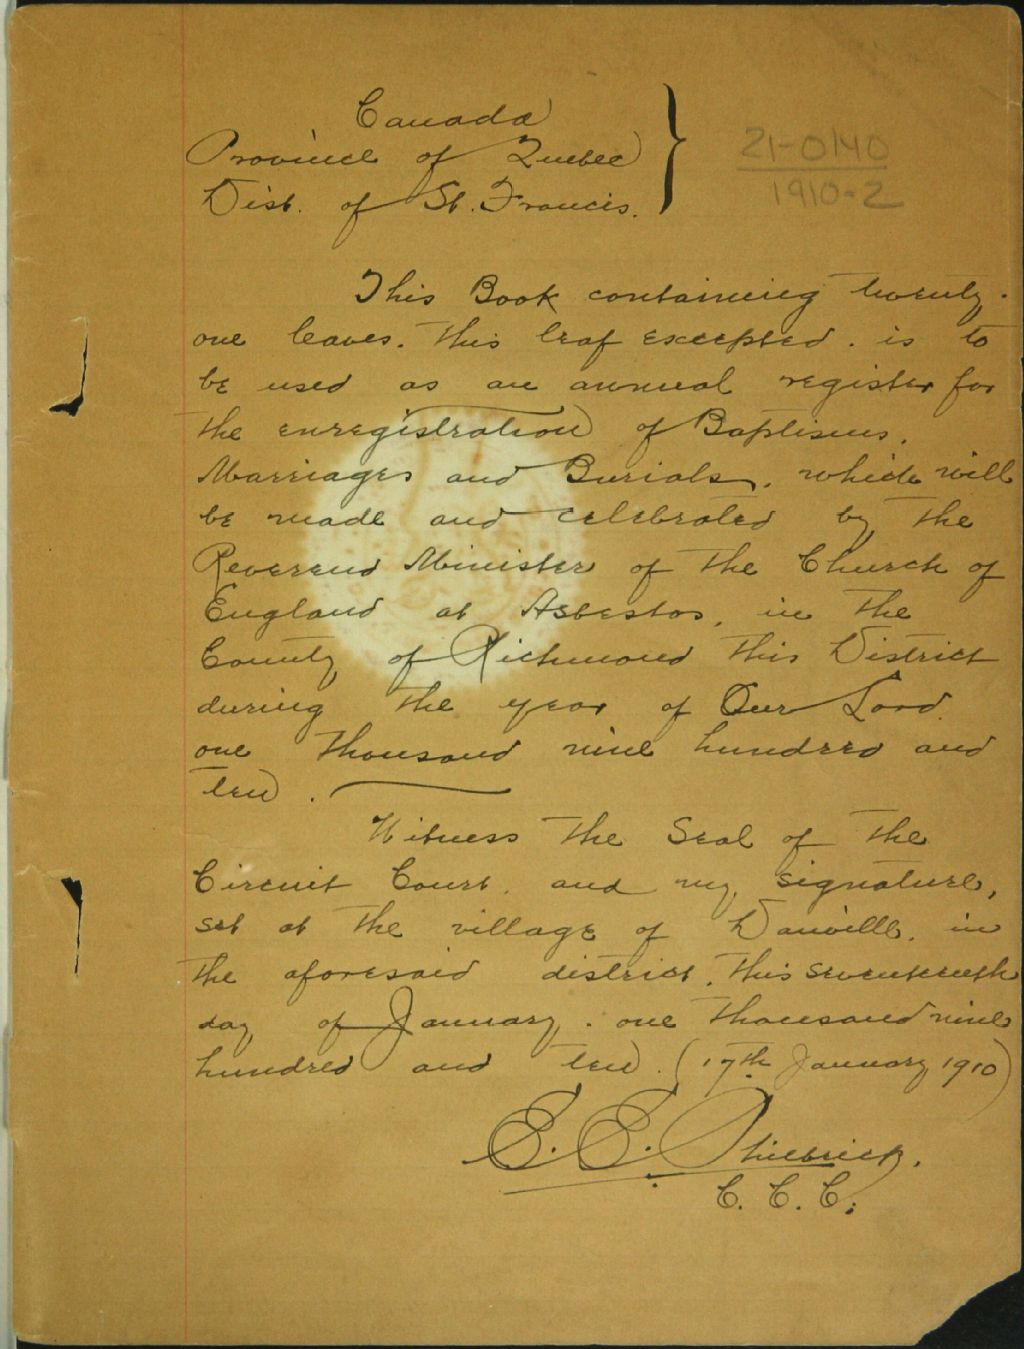 Canada
Province of Quebec
Dist. of St. Francis.
21-0140
1910-2
This Book containing twenty-
one leaves. this leaf excepted. is to
be used as an annual register for
the enregistration of Baptisms.
Marriages and Burials. which will
be made and celebrated by the
Reverend Minister of the Church of
England at Asbestos, in the
County of Richmond this District
during the year of Our Lord
one thousand nine hundred and
ten.
Witness the Seal of the
Circuit Court. and my signature,
set at the village of Danville. in
the aforesaid district. this seventeenth
day of January. one thousand nine
hundred and ten. (17th January 1910)
E. E. Philbrick.
C. C. C.